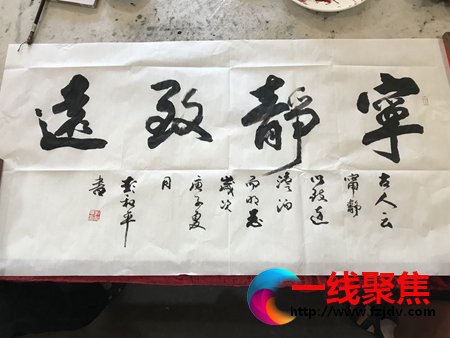 寧靜致遠
古人云
甯静
以致遠
澹泊
而明志
歲次
庚子夏
月
和平
書
一线聚焦
http://www.fzjdv.com